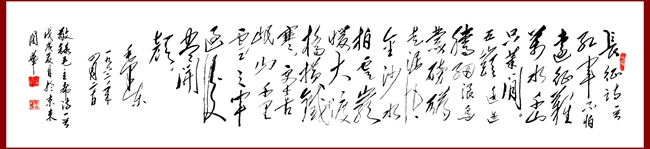 長征詩一首
紅軍不怕
遠征難
萬水千山
只等閒
五嶺逶迤
騰細浪烏
蒙磅礴
走泥丸
金沙水
拍雲崖
暖大渡
橋橫鐵
寒更喜
岷山千里
雪三軍
過後
盡開
顏
毛澤東
一九六二年
四月二十日
敬錄毛主席詩一首
戊戌夏月於京東
國華